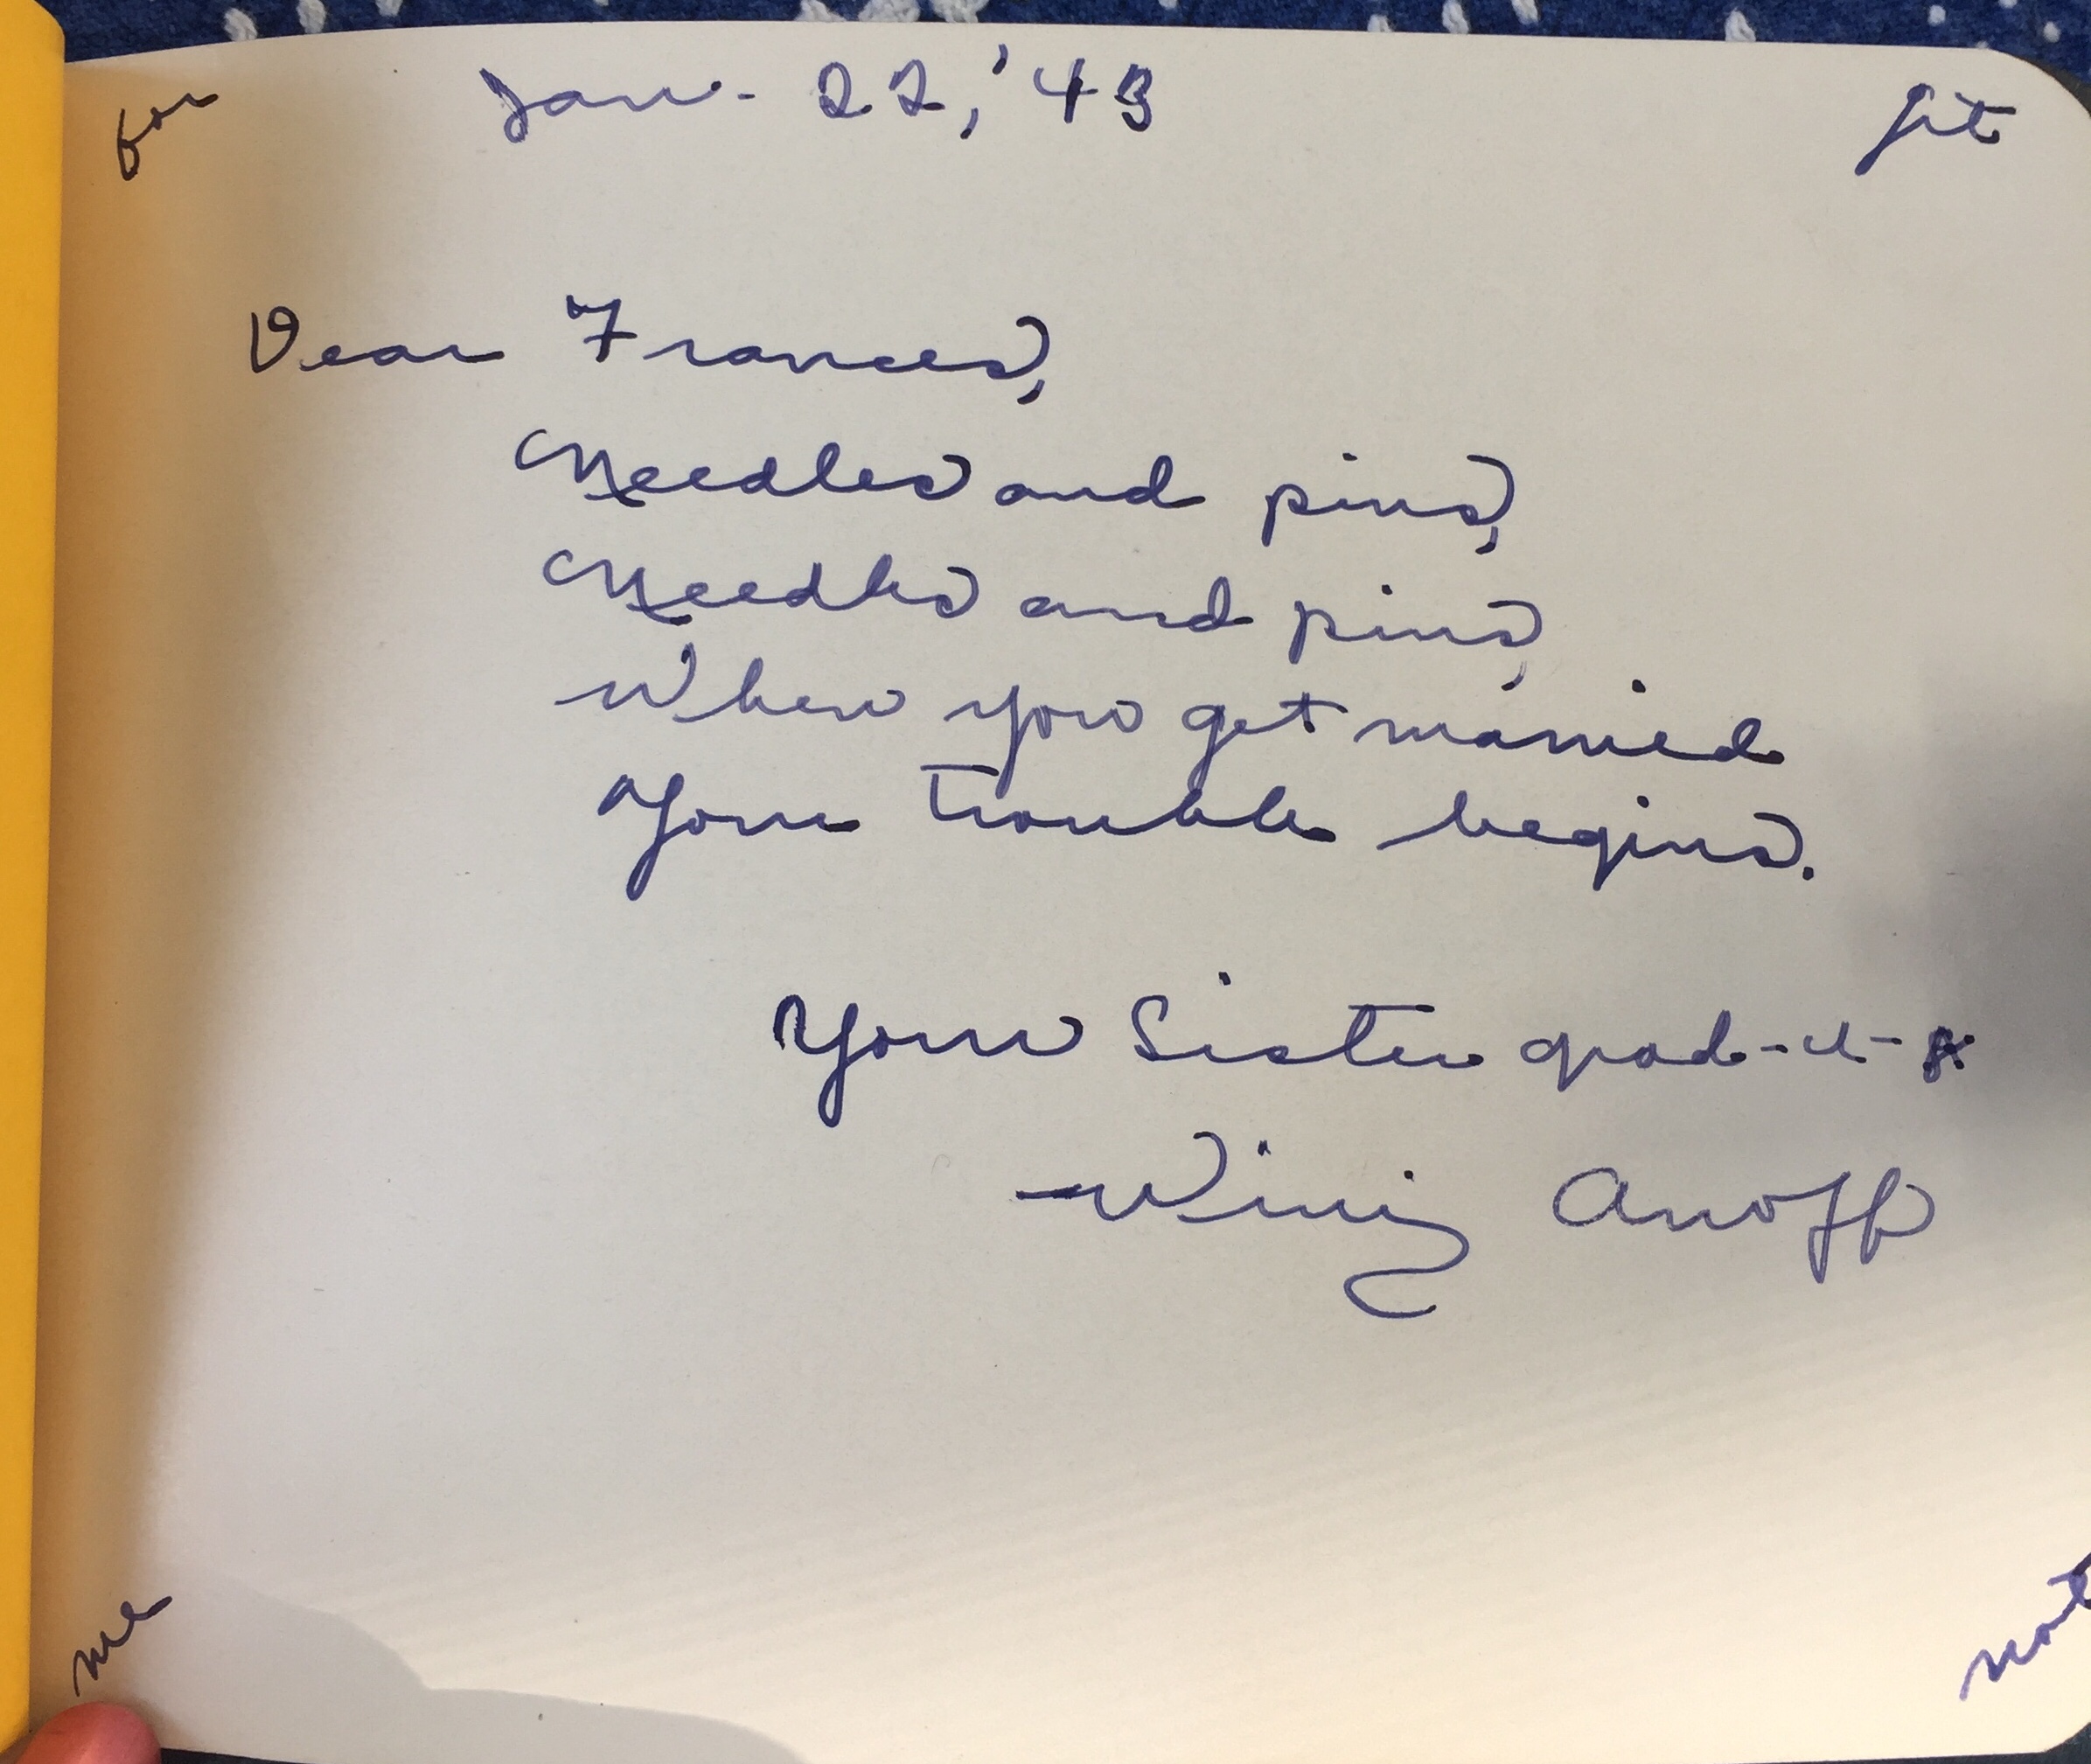 for
Jan. 22, '43
git
Dear Frances,
Needles and pins,
Needles and pins,
When you get married
Your trouble begins.
Your Sister grad-u-8
Winij Anoff
me
not